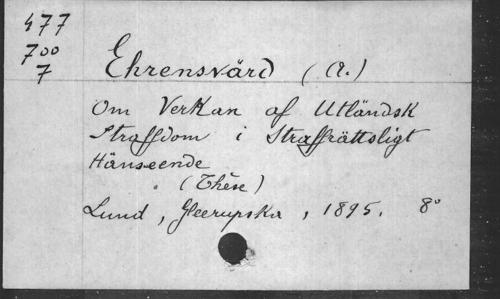 477
700
7
Ehrensvärd (A.)
Om Verkan af Utländsk
Straffdom i Straffrättsligt
Hänseende
(Thèse)
Lund, Gleerupska, 1895. 8°